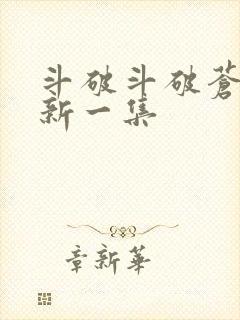 斗破斗破蒼
新一集
章新華